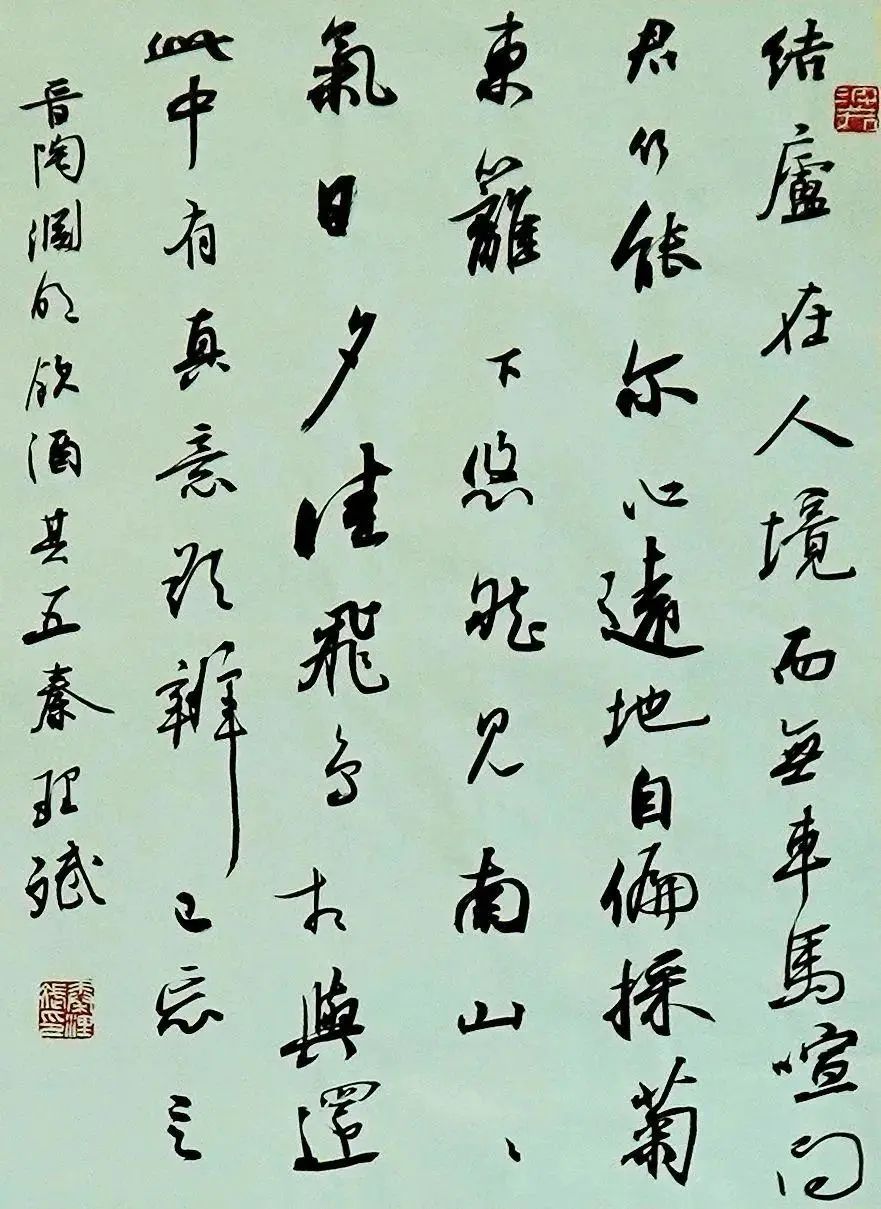 結廬在人境而無車馬喧問
君何能尔心遠地自偏採菊
東籬下悠然見南山、
氣日夕佳飛鳥相與還
此中有真意欲辨已忘言
晉陶淵明飲酒其五秦理斌